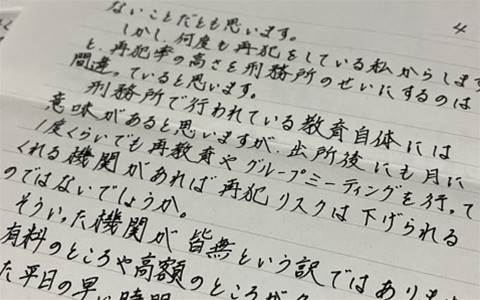 4
ないことだとも思います。
しかし、何度も再犯をしている私からします
と、再犯率の高さを刑務所のせいにするのは
間違っていると思います。
刑務所で行われている教育自体には
意味があると思いますが、出所後にも月に
1度くらいでも再教育やグループミーティングを行って
くれる機関があれば再犯リスクは下げられる
のではないでしょうか。
そういった機関が皆無という訳ではありま
有料のところや高額のところが
た平日の早い時間